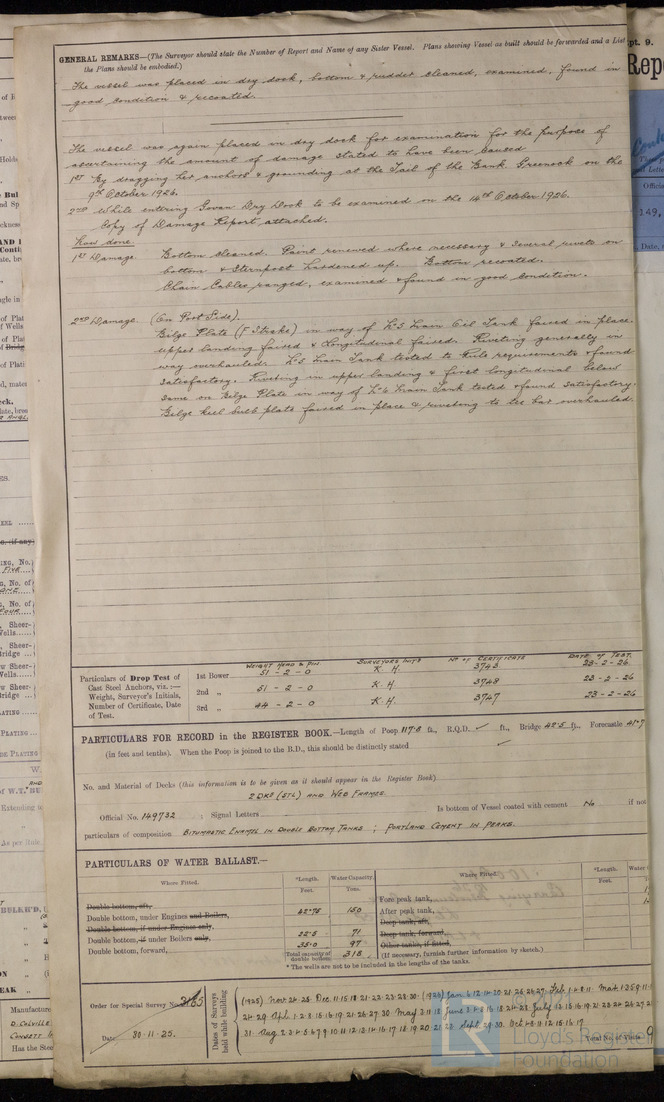 GENERAL REMARKS—(The Surveyor should state the Number of Report and Name of any Sister Vessel. Plans showing Vessel as built should be forwarded and a List
the Plans should be embodied.)
The vessel was placed in dry dock, bottom & rudder cleaned, examined, found in
good condition & recoated.
The vessel was again placed in dry dock for examination for the purpose of
ascertaining the amount of damage stated to have been caused
1st By dragging her anchors & grounding at the Tail of the Bank Greenock on the
9th October 1926.
2nd While entering Govan Dry Dock to be examined on the 14th October 1926.
Copy of Damage Report attached.
Now done.
1st Damage. Bottom cleaned. Paint renewed where necessary & several rivets on
bottom & sternpost hardened up. Bottom recoated.
Chain Cables ranged, examined & found in good condition.
2nd Damage (On Port Side).
Bilge Plate (F Strake) in way of No 5 Main Oil Tank faired in place.
upper landing faired & Longitudinal faired. Riveting generally in
way overhauled. No 5 Main Tank tested to Rule requirements & found
satisfactory. Riveting in upper landing & first longitudinal below
same on Bilge Plate in way of No 6 Main Tank tested & found satisfactory.
Bilge keel bulb plate faired in place & riveting to tee bar overhauled.
WEIGHT HEAD & PIN SURVEYORS INITS No OF CERTIFICATE DATE OF TEST.
Particulars of Drop Test of
Cast Steel Anchors, viz. :—
Weight, Surveyor's Initials,
Number of Certificate, Date
of Test.
1st Bower 51 - 2 - 0 K. H. 3743 23-2-26
2nd „ 51 - 2 - 0 K. H. 3748 23-2-26
3rd „ 44 - 2 - 0 K. H. 3747 23-2-26
PARTICULARS FOR RECORD in the REGISTER BOOK.—Length of Poop 117.8 ft., R.Q.D. ✓ ft., Bridge 42.5 ft., Forecastle 41.7
(in feet and tenths). When the Poop is joined to the B.D., this should be distinctly stated ✓
No. and Material of Decks (this information is to be given as it should appear in the Register Book)
2 DKS (STL) AND WEB FRAMES.
Official No. 149732 ; Signal Letters Is bottom of Vessel coated with cement No if not
particulars of composition BITUMASTIC ENAMEL IN DOUBLE BOTTOM TANKS ; PORTLAND CEMENT IN PEAKS.
PARTICULARS OF WATER BALLAST.—
Where Fitted. *Length. Feet. Water Capacity. Tons.
Double bottom, aft,
Double bottom, under Engines and Boilers, 62.75 150
Double bottom, if under Engines only,
Double bottom, if under Boilers only, 22.5 71
Double bottom, forward, 35.0 97
Total capacity of double bottom 318.
Where Fitted. *Length. Feet.
Fore peak tank,
After peak tank,
Deep tank, aft,
Deep tank, forward,
Other tanks, if fitted,
(If necessary, furnish further information by sketch.)
* The wells are not to be included in the lengths of the tanks.
Order for Special Survey No. 3165
Date 30.11.25.
Dates of Surveys held while building
Total No. of Visits
Lloyd's Register
Foundation